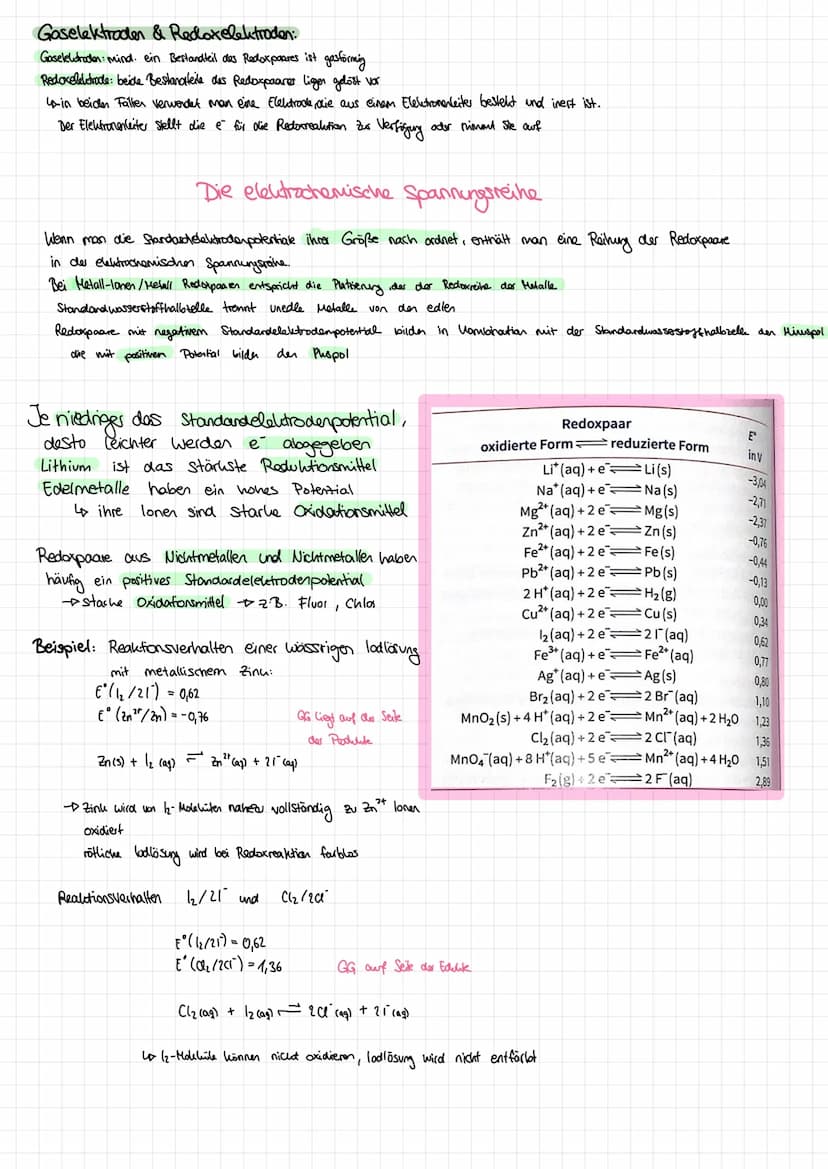 Gaselektroden & Redoxelektroden:
Gaselektroden: mind. ein Bestandteil des Redoxpaares ist gasförmig
Redoxelektrode: beide Bestandteile des Redoxpaares ligen gelöst vor
↳ in beiden Fällen verwendet man eine Elektrode, die aus einem Elektronenleiter besteht und inert ist.
Der Elektronenleiter stellt die e⁻ für die Redoxreaktion zur Verfügung oder nimmt sie auf
Die elektrochemische Spannungsreihe
Wenn man die Standardelektrodenpotentiale ihrer Größe nach ordnet, enthält man eine Reihung der Redoxpaare
in der elektrochemischen Spannungsreihe.
Bei Metall-Ionen/Metall Redoxpaaren entspricht die Platzierung der der Redoxreihe der Metalle
Standardwasserstoffhalbzelle trennt unedle Metalle von den edlen
Redoxpaare mit negativem Standardelektrodenpotential bilden in Kombination mit der Standardwasserstoffhalbzelle den Minuspol
die mit positiven Potential bilden den Pluspol
Je niedriger das Standardelektrodenpotential,
desto leichter werden e⁻ abgegeben
Lithium ist das stärkste Reduktionsmittel
Edelmetalle haben ein hohes Potential
↳ ihre Ionen sind starke Oxidationsmittel
Redoxpaare aus Nichtmetallen und Nichtmetallen haben
häufig ein positives Standardelektrodenpotential
→ starke Oxidationsmittel → z.B. Fluor, Chlor
Redoxpaar E°
oxidierte Form ⇌ reduzierte Form in V
Li⁺(aq) + e⁻ ⇌ Li(s) -3,04
Na⁺(aq) + e⁻ ⇌ Na(s) -2,71
Mg²⁺(aq) + 2 e⁻ ⇌ Mg(s) -2,37
Zn²⁺(aq) + 2 e⁻ ⇌ Zn(s) -0,76
Fe²⁺(aq) + 2 e⁻ ⇌ Fe(s) -0,44
Pb²⁺(aq) + 2 e⁻ ⇌ Pb(s) -0,13
2 H⁺(aq) + 2 e⁻ ⇌ H₂(g) 0,00
Cu²⁺(aq) + 2 e⁻ ⇌ Cu(s) 0,34
I₂(aq) + 2 e⁻ ⇌ 2 I⁻(aq) 0,62
Fe³⁺(aq) + e⁻ ⇌ Fe²⁺(aq) 0,77
Ag⁺(aq) + e⁻ ⇌ Ag(s) 0,80
Br₂(aq) + 2 e⁻ ⇌ 2 Br⁻(aq) 1,10
MnO₂(s) + 4 H⁺(aq) + 2 e⁻ ⇌ Mn²⁺(aq) + 2 H₂O 1,23
Cl₂(aq) + 2 e⁻ ⇌ 2 Cl⁻(aq) 1,36
MnO₄⁻(aq) + 8 H⁺(aq) + 5 e⁻ ⇌ Mn²⁺(aq) + 4 H₂O 1,51
F₂(g) + 2 e⁻ ⇌ 2 F⁻(aq) 2,89
Beispiel: Reaktionsverhalten einer wässrigen Iodlösung
mit metallischem Zink:
E°(I₂/2I⁻) = 0,62
E°(Zn²⁺/Zn) = -0,76
GG liegt auf der Seite
der Produkte
Zn(s) + I₂ (aq) ⇌ Zn²⁺(aq) + 2I⁻(aq)
→ Zink wird von I₂-Molekülen nahezu vollständig zu Zn²⁺ Ionen
oxidiert
rötliche Iodlösung wird bei Redoxreaktion farblos
Reaktionsverhalten I₂/2I⁻ und Cl₂/2Cl⁻
E°(I₂/2I⁻) = 0,62
E°(Cl₂/2Cl⁻) = 1,36
GG auf Seite der Edukte
Cl₂(aq) + I₂(aq) ⇌ 2Cl⁻(aq) + 2I⁻(aq)
↳ I₂-Moleküle können nicht oxidieren, Iodlösung wird nicht entfärbt